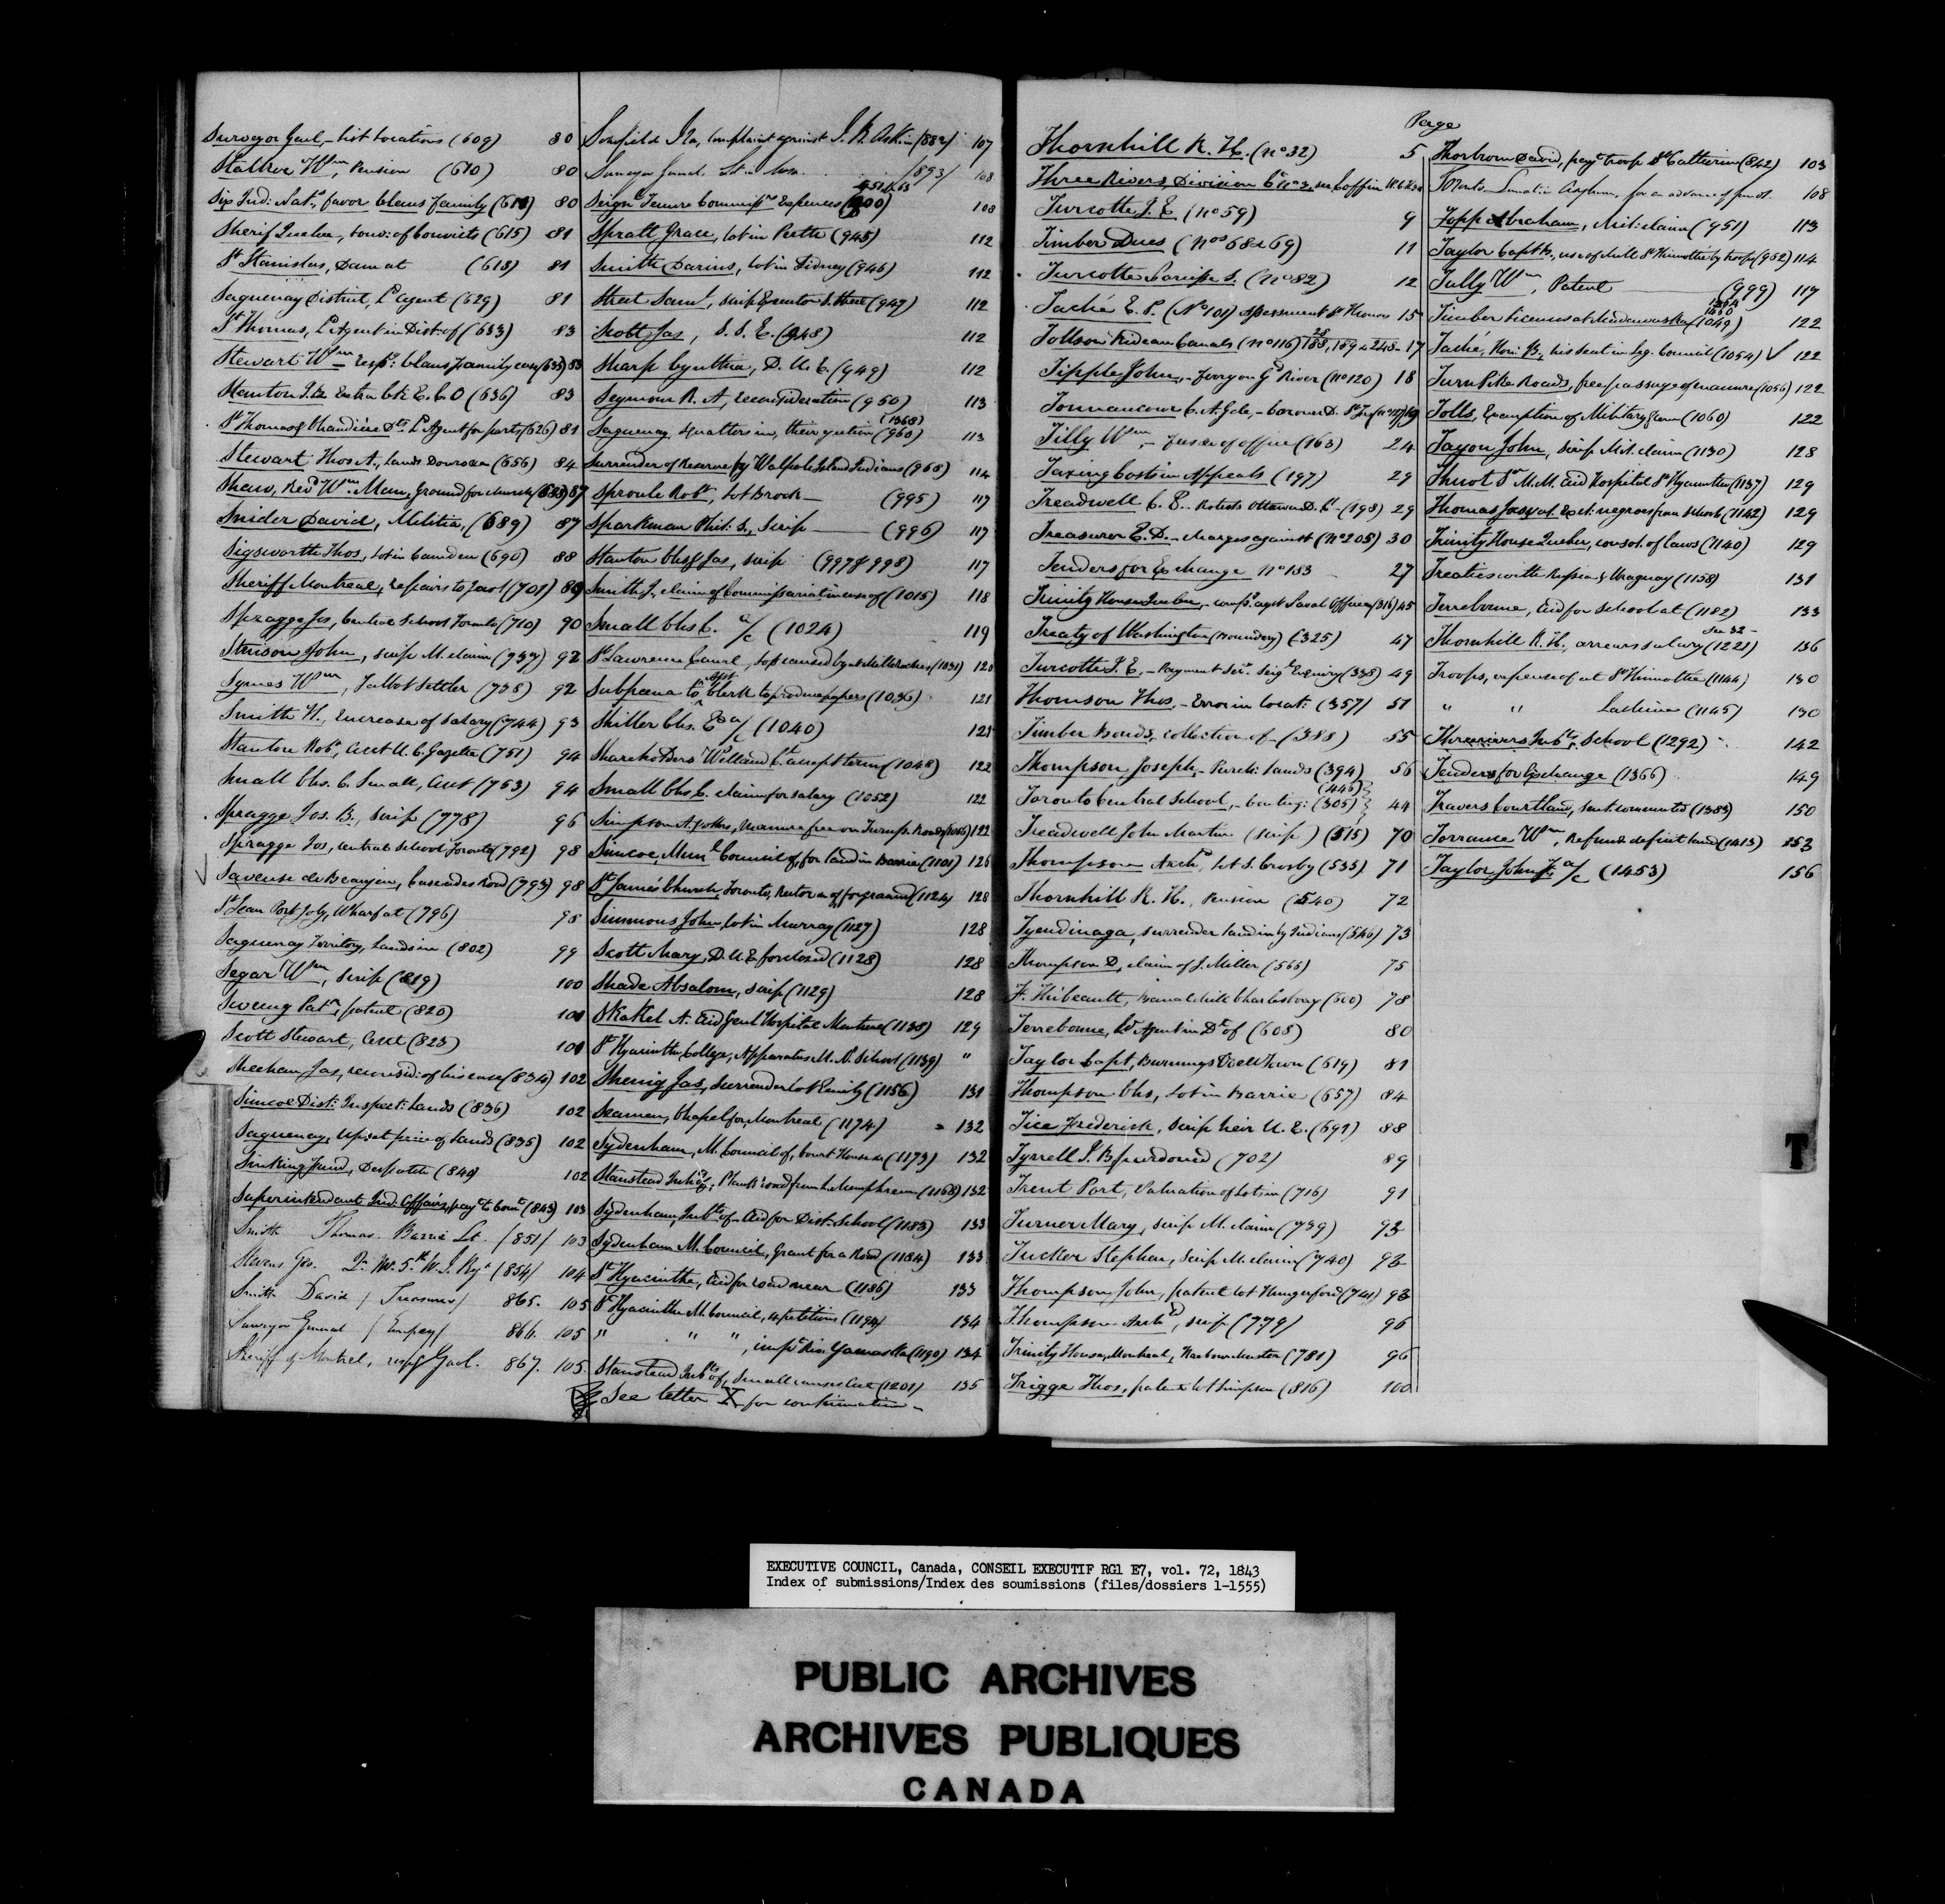 Surveyor Genl,- list Locations (609) 80
Wm, Pension (610) 80
Six Ind: Nats, favor Claus family (611) 80
Sherif Quebec, conv: of Convicts (615) 81
St Stanislas, Dam at (618) 81
Saguenay District, Ld Agent (629) 81
St Thomas, Ld Agent in Dist: of (633) 83
Stewart Wm respg Claus family case (635) 83
Stanton Extra Clk E. C. O (636) 83
St Thomas & Chaudière Ld Agent for part (626) 81
Stewart Thos A., lands Douro (656) 84
Shaw, Revd Wm Man, Ground for church (683) 87
Snider David, Militia, (689) 87
Sigsworth Thos, lot in Camden (690) 88
Sheriff Montreal, repairs to Jaol (701) 89
Spragge Jos, Central School Toronto (710) 90
Stinson John, scrip M. claim (737) 92
Symes Wm, Talbot Settler (738) 92
Smith H., Increase of Salary (744) 93
Stanton Robt, acct U. C. Gazette (751) 94
Small Chs. C. Small, acct (753) 94
Spragge Jos. B., scrip (778) 96
Spragge Jos, Central School Toronto (792) 98
Saveuse de Beaujeu, Cascades Road (793) 98
St Jean Port Joly, Wharf at (796) 98
Saguenay Territory, Lands in (802) 99
Segar Wm, scrip (819) 100
Sweeny Patk, patent (820) 101
Scott Stewart, acct (823) 101
Sheehan Jas, reconsid: of his case (834) 102
Simcoe Dist: Inspect: Lands (836) 102
Saguenay, upset price of Lands (835) 102
Sinking Fund, Despatch (840) 102
Superintendant Ind: Affairs, payt to Comt (843) 103
Smith Thomas. Barrie Lt. /851/ 103
Stevens Geo. Qr Mr. 5th W. I. Regt /854/ 104
Smith David / Treasurer/ 865. 105
Surveyor General / Empey/ 866. 105
Sheriff of Montreal, respg Gaol. 867. 105.
Ira, complaint against J. B. Askin /882/ 107
Surveyor Genl. /893/ 108
451 & 63
Seignl Tenure Commissrs Expences (900) 108
Spratt Grace, lot in Perth (945) 112
Smith Darius, lot in Sidney (946) 112
Street Saml, scrip Executor S. Street (947) 112
Scott Jas, S. U. E. (948) 112
Sharp Cynthia, D. U. E. (949) 112
Seymour R. A, reconsideration (950) 113
(1368)
Saguenay, squatters in, their petition (960) 113
Surrender of Reserve by Walpole Island Indians (968) 114
Sproule Robt, lot Brock — (995) 117
Sparkman Phil: S., Scrip — (996) 117
Stanton Chs & Jas, scrip (997 & 998) 117
Smith J., claim of Commissariat in case of (1015) 118
Small Chs C. a/c (1024) 119
St Lawrence Canal, loss caused by (1031) 120
Subpœna to asst Clerk to produce papers (1036) 121
Chs. E. a/c (1040) 121
Shareholders Welland Cl. accept terms (1048) 122
Small Chs C. claim for salary (1052) 122
Simpson A. & others, manure free on Turnp. Roads (1056) 122
Simcoe Munl Council of, for land in Barrie (1101) 126
St James' Church, Toronto, Rector of for ground (1124) 128
Simmons John, lot in Murray (1127) 128
Scott Mary, D. U. E. foreclosed (1128) 128
Shade Absalom, scrip (1129) 128
Skakel A. aid Genl Hospital Montreal (1138) 129
St Hyacinthe College, Apparatus M. N. School (1139) "
Shenig Jas, surrender lot Emily (1156) 131
Seamen, Chapel for, Montreal (1174) 132
Sydenham, M. Council of, Court House (1173) 132
Stanstead Inhts, Plank road from L. Memphrem (1168) 132
Sydenham, Inhts of - aid for Dist: School (1183) 133
Sydenham M. Council, Grant for a Road (1184) 133
St Hyacinthe, aid for road near (1186) 133
St Hyacinthe M. Council, 4 petitions (1194) 134
" " ", impt Riv. Yamaska (1190) 134
Stanstead Inhts of, Small causes act (1201) 135
See letter X for continuation -
Thornhill R. H. (no 32) 5
Three Rivers, Division Ct no 3, see Coffin
Turcotte J. E. (no 59) 9
Timber Dues (nos 68 & 69) 11
Turcotte (no 82) 12
Taché E. P. (No 101) assessment St Thomas 15
Tolls on Rideau Canals (no 116) 188, 189 & 248 - 17
Tipple John, - Ferry on Gd River (no 120) 18
Tonnancour C. A. Gde, - Coroner D.
Tilly Wm, - Fees of office (163) 24
Taxing Costs in Appeals (197) 29
Treadwell C. P. - Protests Ottawa D. Cl - (198) 29
Treasurer E. D. - charges against (no 205) 30
Tenders for Exchange no 183 27
Trinity House Quebec, - compt agst Naval Officer (316) 45
Treaty of Washington (boundary) (325) 47
Turcotte J. E. - Payment Secy Seigl Enquiry (338) 49
Thomson Thos, - Error in locat: (357) 51
Timber Bonds, collection of - (388) 55
Thompson Joseph, - Purch: lands (394) 56
(446)
Toronto Central School, - Conting: (305) } 44
Treadwell John Martin (scrip) (515) 70
Thompson Archd, lot S. Crosby (535) 71
Thornhill R. H., Pension (540) 72
Tyendinaga, surrender land in by Indians (546) 73
Thompson D, claim of J. Miller (566) 75
F. Thibeault, Banal Mill Charlesbourg (600) 78
Terrebonne, Ld Agent in Dt of (608) 80
Taylor Capt, Burnings Well Town (619) 81
Thompson Chs, lot in Barrie (657) 84
Tice Frederick, scrip heir U. E. (691) 88
Tyrrell J. B pardoned (702) 89
Trent Port, Valuation of Lots in (716) 91
Turner Mary, scrip M. claim (739) 92
Tucker Stephen, scrip M. claim (740) 92
Thompson John, patent lot Hungerford (741) 92
Thompson Archd, scrip (779) 96
Trinity House, Montreal, Harbour Master (781) 96
Trigge Thos, patent lot Simpson (816) 100
Page
Thorbron David, payt troop St Catherines (842) 103
Toronto Lunatic Asylum, for an advance of funds. 108
Topp Abraham, Mil: claim (951) 113
Taylor Capt B, use of Mill St Thimothé by troops (952) 114
Tully Wm, Patent — (999) 117
Timber Licences at Madawaska (1049) 122
Taché, Hon: P., his seat in Leg. Council (1054) √ 122
Turn Pike Roads, free passage of manure (1056) 122
Tolls, Exemption of Military from (1060) 122
Tayon John, scrip Mil. claim (1130) 128
Thuot Sr M. M. aid Hospital St Hyacinthe (1137) 129
Thomas Jos, & al. Excl: negroes from schools (1142) 129
Trinity House Quebec, consol. of laws (1140) 129
Treaties with Russia & Uruguay (1158) 131
Terrebonne, aid for School at (1182) 133
see 32 -
Thornhill R. H., arrears salary (1221) 136
Troops, expense of at St Thimothé (1144) 130
" " Lachine (1145) 130
Threerivers Inhts, School (1292) 142
Tenders for Exchange (1366) 149
Travers Courtland, sent. commuted (1383) 150
Torrance Wm, Refund: deficit land (1413) 153
Taylor John F. a/c (1453) 156
T
EXECUTIVE COUNCIL, Canada, CONSEIL EXECUTIF RG1 E7, vol. 72, 1843
Index of submissions/Index des soumissions (files/dossiers 1-1555)
PUBLIC ARCHIVES
ARCHIVES PUBLIQUES
CANADA